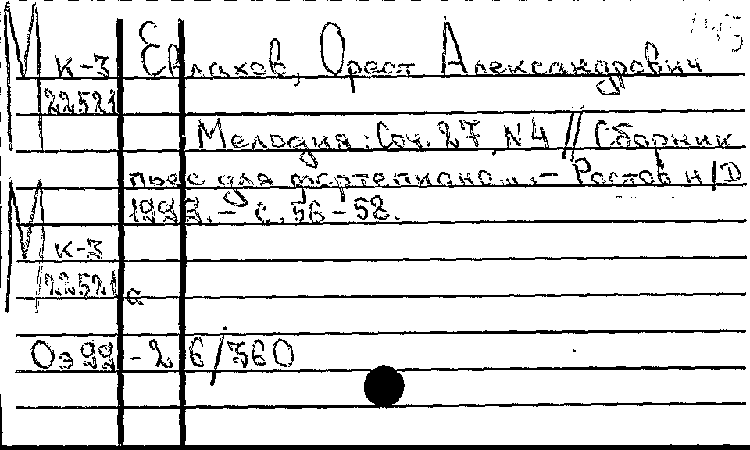 М к-3 Евлахов, Орест Александрович
22521
Мелодия : Соч. 27, N4 // Сборник
пьес для фортепиано... .- Ростов н/Д
1999. - С. 56-58.
М к-3
22521
Оэ99-2 6/360